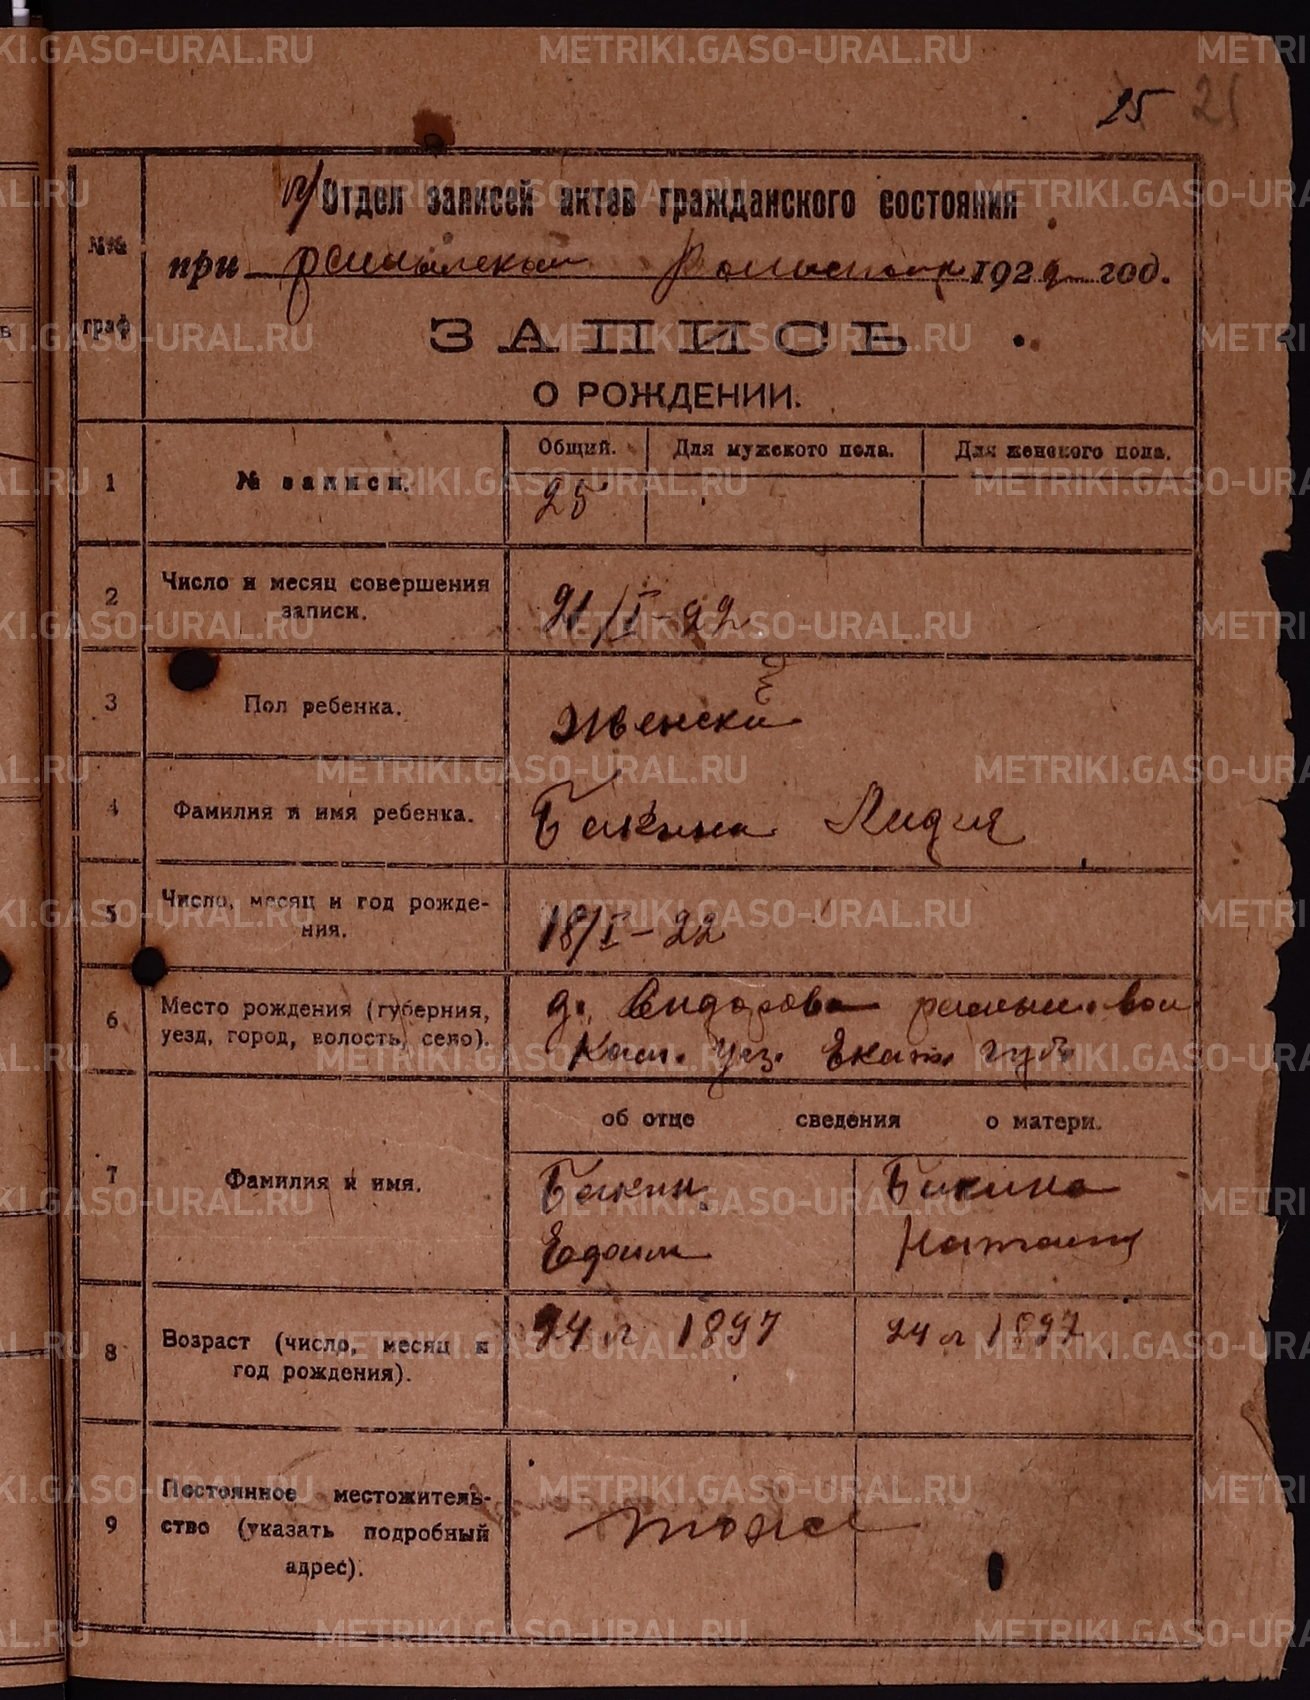 25
п/Отдел записей актов гражданского состояния
при Волисполк. 1922 год.
№№
граф
ЗАПИСЬ
О РОЖДЕНИИ.
1
№ записи.
Общий. Для мужского пола. Для женского пола.
25
2
Число и месяц совершения
записи.
21/I-22
3
Пол ребенка.
Женски
4
Фамилия и имя ребенка.
Бакина Лидия
5
Число, месяц и год рожде-
ния.
18/I-22
6
Место рождения (губерния,
уезд, город, волость, село).
д. Сидорова вол
Уез. Екат. губ
об отце сведения о матери.
7
Фамилия и имя.
Бакин
Евдоким
Бакина
8
Возраст (число, месяц и
год рождения).
24 л 1897
24 л 1897
9
Постоянное местожитель-
ство (указать подробный
адрес).
тоже
METRIKI.GASO-URAL.RU